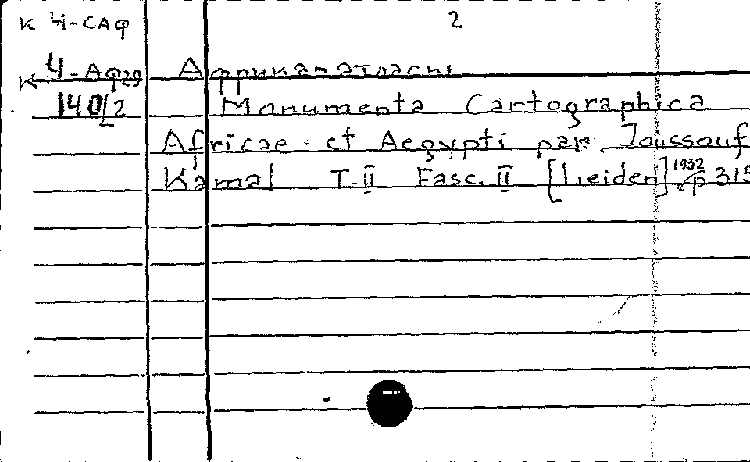 К Ч-САФ 2
К Ч-Аф29 Африка-атласы
140/2 Monumenta Cartographica
Africae et Aegypti par Joussouf
Kamal T.II Fasc. II [Leiden] 1932 p 315